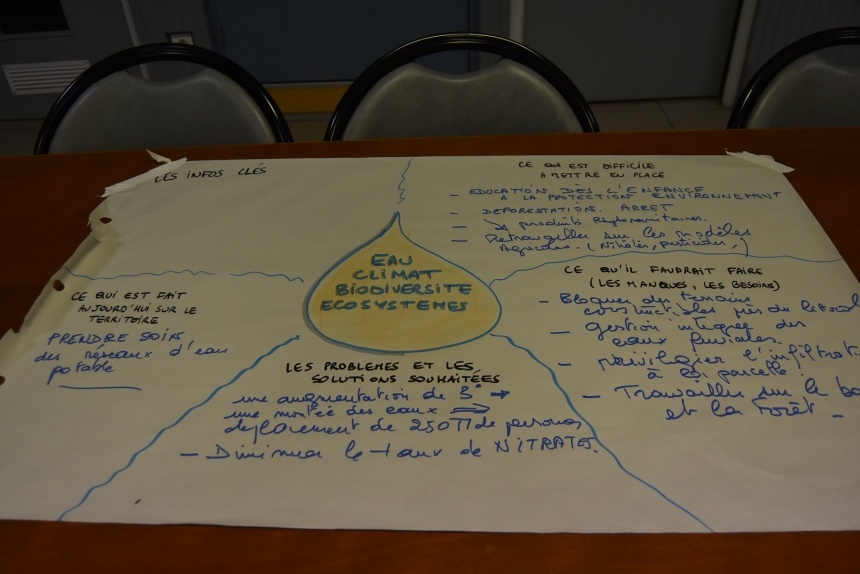 LES INFOS CLÉS
CE QUI EST DIFFICILE
A METTRE EN PLACE
- EDUCATION DÈS L'ENFANCE
À LA PROTECTION ENVIRONNEMENT
- DEFORESTATIONS. ARRET
- ↘ produits Phytosanitaires.
- Retravailler sur les modèles
Agricoles. (Nitrates, pesticides,)
EAU
CLIMAT
BIODIVERSITE
ECOSYSTEMES
CE QUI EST FAIT
AUJOURD'HUI SUR LE
TERRITOIRE
PRENDRE SOIN
des réseaux d'eau
potable
LES PROBLEMES ET LES
SOLUTIONS SOUHAITÉES
une augmentation de 3° →
une montée des eaux ⇒
deplacement de 250 de personnes
- Diminuer le taux de NITRATES.
CE QU'IL FAUDRAIT FAIRE
(LES MANQUES, LES BESOINS)
- Bloquer des terrains
constructibles près du littoral
- gestion intégrée des
eaux pluviales.
- privilégier l'infiltrati
à la parcelle
- Travailler sur le bo
et la Forêt -